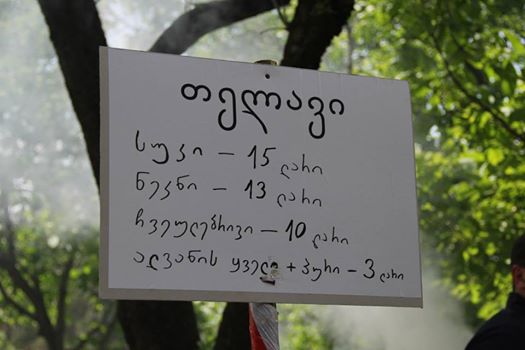 თელავი
სუკი – 15 ლარი
ნეკნი – 13 ლარი
ჩვეულებრივი – 10 ლარი
ალვანის ყველი + პური – 3 ლარი